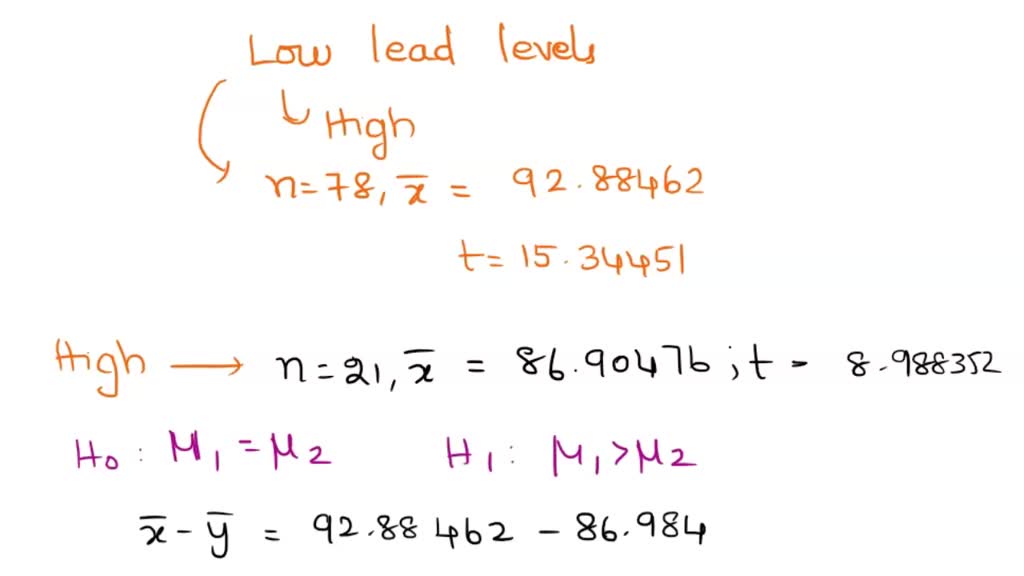 Low lead levels
High
n=78, x̅ = 92.88462
t= 15.34451
High → n=21, x̅ = 86.90476 ; t - 8.988352
H₀ : μ₁ = μ₂ H₁ : μ₁ > μ₂
x̅ - y̅ = 92.88462 - 86.984